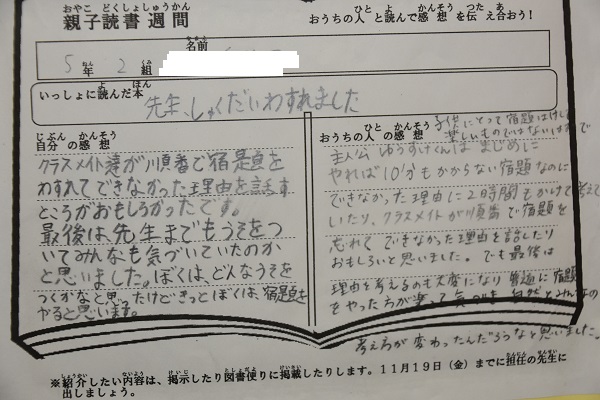 おやこ どくしょしゅうかん
親子読書週間
ひと よ かんそう つた あ
おうちの人 と読んで感想 を伝え合おう!
5年2組
なまえ
名前
よ ほん
いっしょに読んだ本
先生、しゅくだいわすれました
じぶん かんそう
自分 の感想
クラスメイト達が順番で宿題を
わすれてできなかった理由を話す
ところがおもしろかったです。
最後は先生までもうそをつ
いてみんなも気づいていたのか
と思いました。ぼくは、どんなうそを
つくかなと思ったけどきっとぼくは、宿題を
やると思います。
ひと かんそう
おうちの人 の感想
子供にとって宿題は
楽しいものではないはずで
主人公ゆうすけくんはまじめに
やれば10分もかからない宿題なのに
できなかった理由に2時間もかけて考えて
いたり、クラスメイトが順番で宿題を
忘れてできなかった理由を話したり
おもしろいと思いました。でも最後は
理由を考えるのも大変になり普通に宿題
をやった方が楽って気づき 自然とみんなの
考え方が変わったんだろうなと思いました。
しょうかい ないよう けいじ としょだよ けいさい たんにん せんせい
※紹介したい内容は、掲示したり図書便りに掲載したりします。11月19日(金)までに担任の先生に
だ
出しましょう。